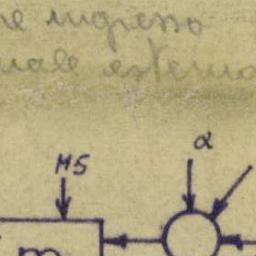 ne ingresso
uale esterno
α
M5
m